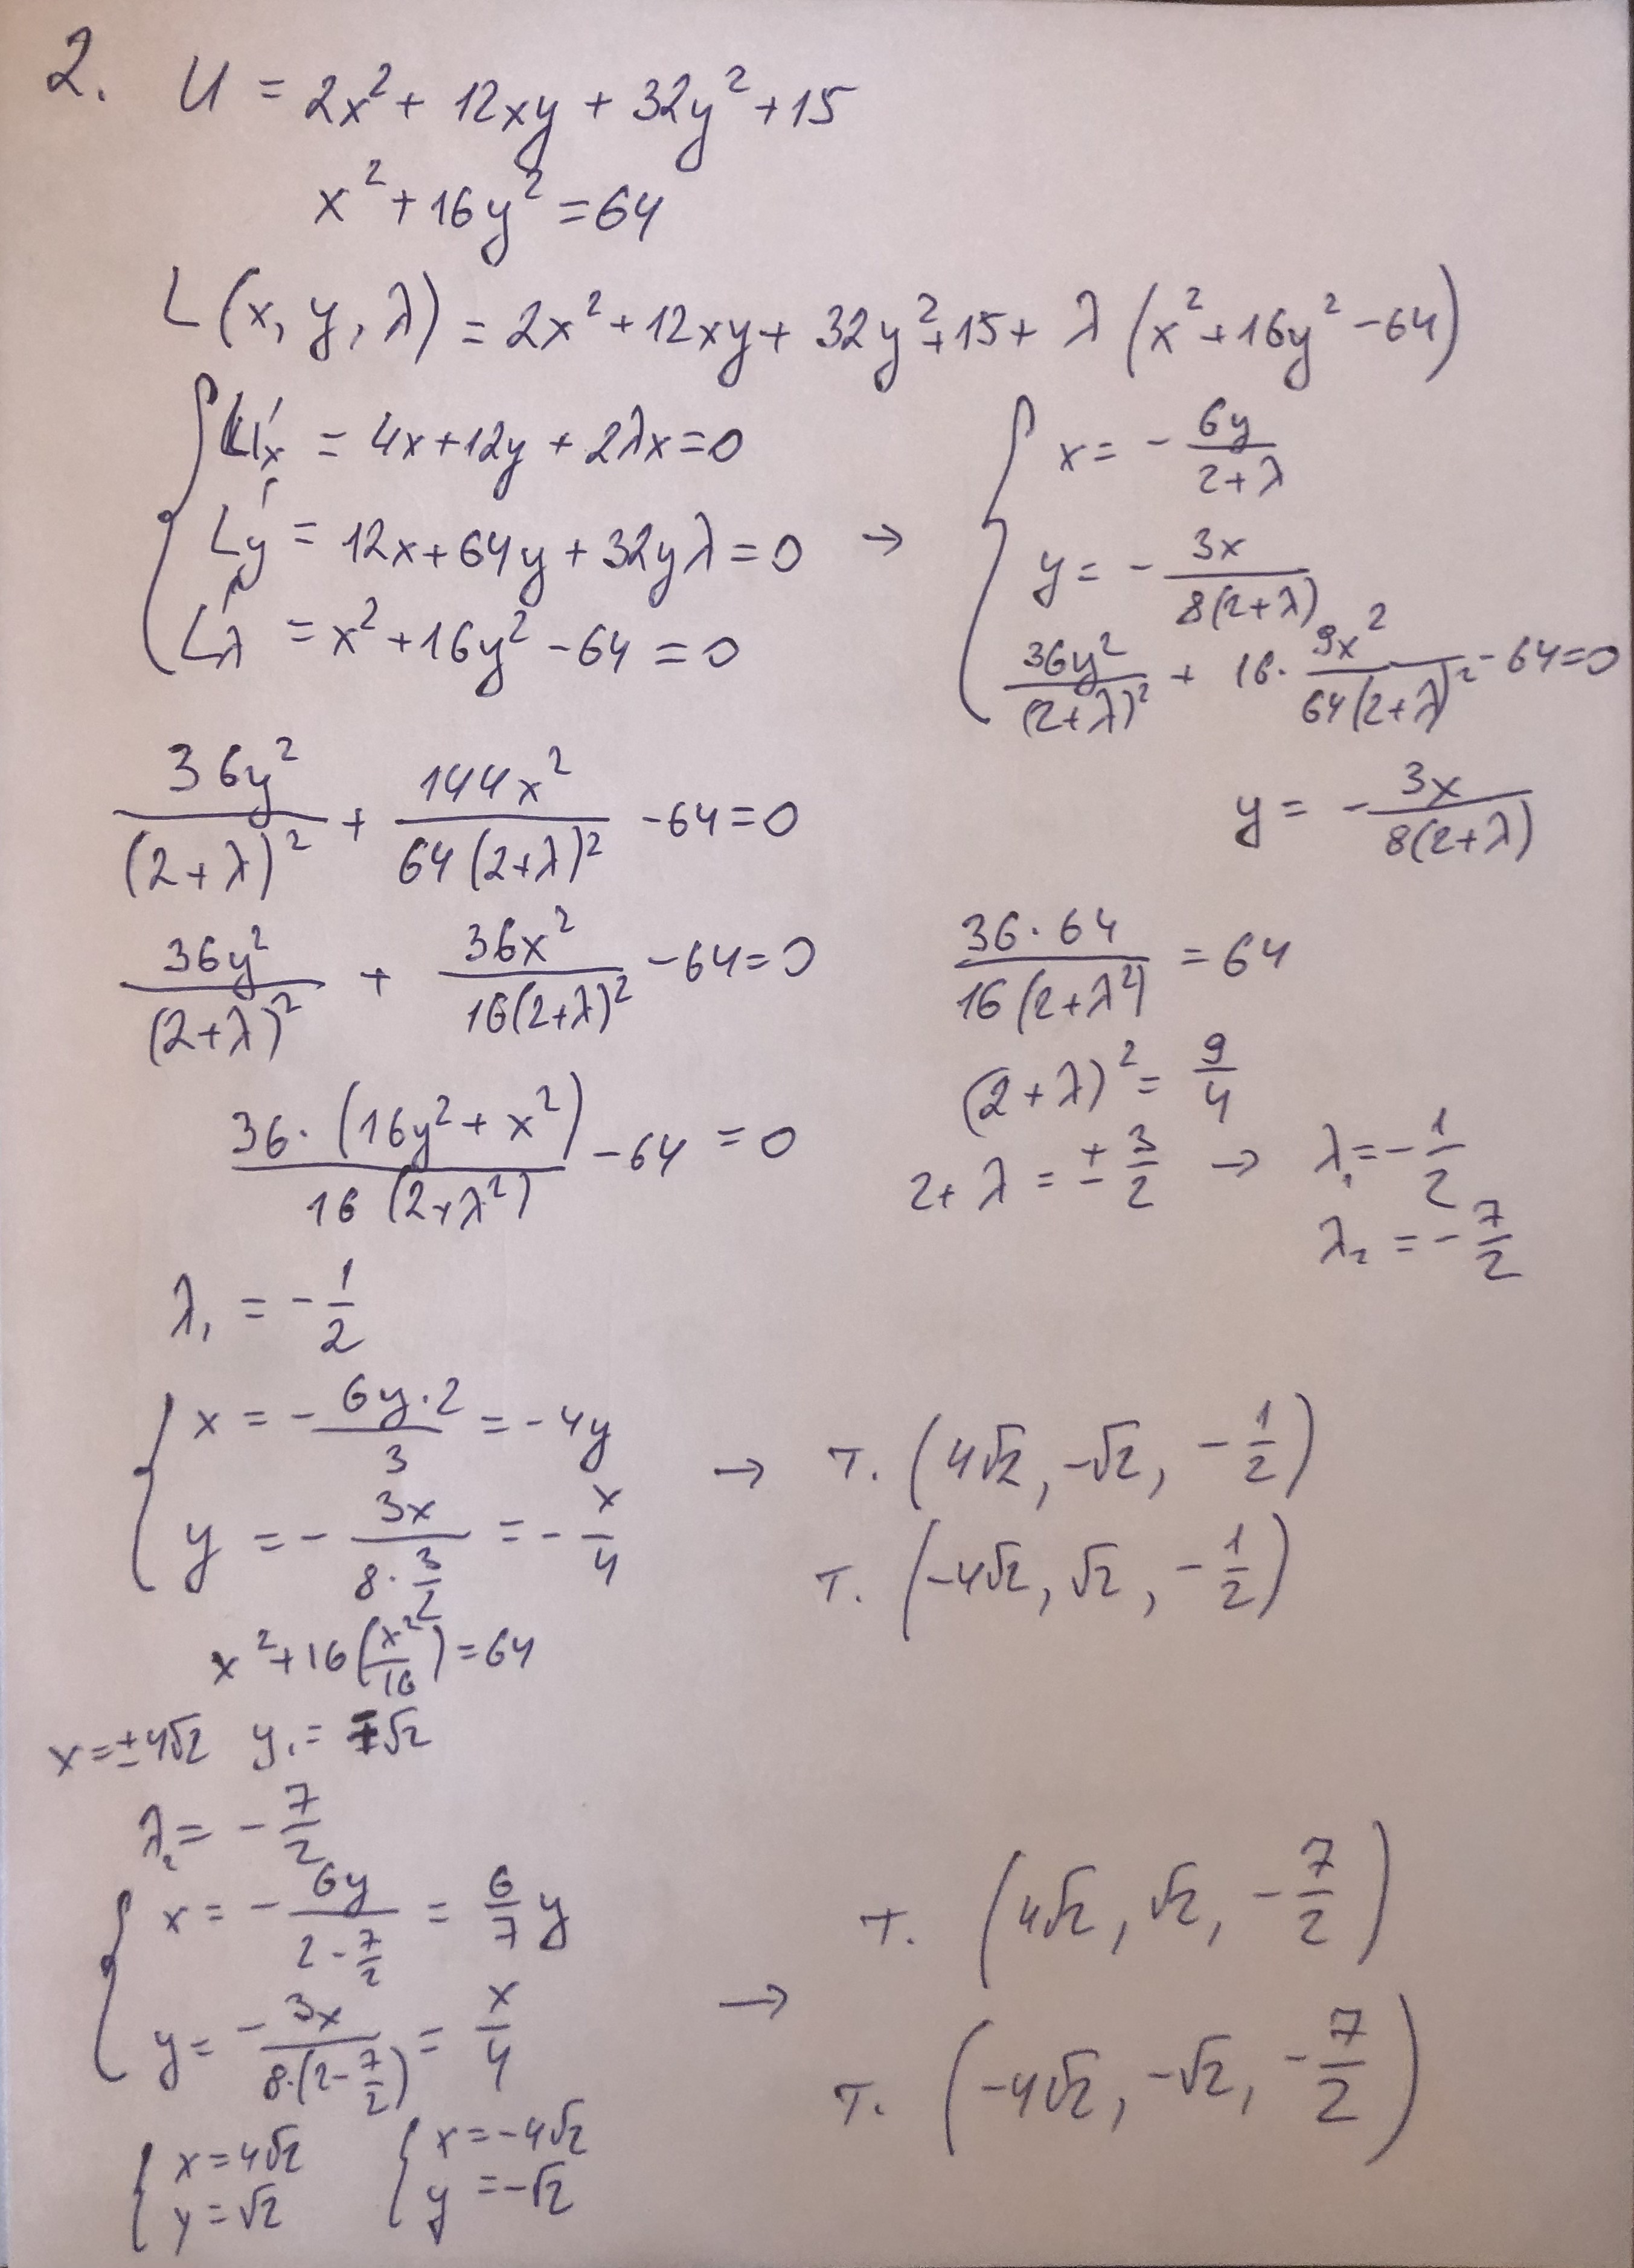 2. U = 2x² + 12xy + 32y² + 15
x² + 16y² = 64
L(x, y, λ) = 2x² + 12xy + 32y² + 15 + λ(x² + 16y² - 64)
{ L'x = 4x + 12y + 2λx = 0
L'y = 12x + 64y + 32yλ = 0 →
L'λ = x² + 16y² - 64 = 0
{ x = - 6y/(2+λ)
y = - 3x/(8(2+λ))
36y²/(2+λ)² + 16 · 9x²/(64(2+λ)²) - 64 = 0
36y²/(2+λ)² + 144x²/(64(2+λ)²) - 64 = 0
y = - 3x/(8(2+λ))
36y²/(2+λ)² + 36x²/(16(2+λ)²) - 64 = 0
36·(16y² + x²)/(16(2+λ²)) - 64 = 0
36·64/(16(2+λ²)) = 64
(2+λ)² = 9/4
2+λ = ± 3/2 → λ₁ = - 1/2
λ₂ = - 7/2
λ₁ = - 1/2
{ x = - 6y·2/3 = - 4y
y = - 3x/(8·3/2) = - x/4
→ т. (4√2, -√2, - 1/2)
т. (-4√2, √2, - 1/2)
x² + 16(x²/16) = 64
x = ±4√2 y₁ = ∓√2
λ₂ = - 7/2
{ x = - 6y/(2 - 7/2) = 6/7 y
y = - 3x/(8·(2 - 7/2)) = x/4
→ т. (4√2, √2, - 7/2)
т. (-4√2, -√2, - 7/2)
{ x = 4√2
y = √2
{ x = -4√2
y = -√2